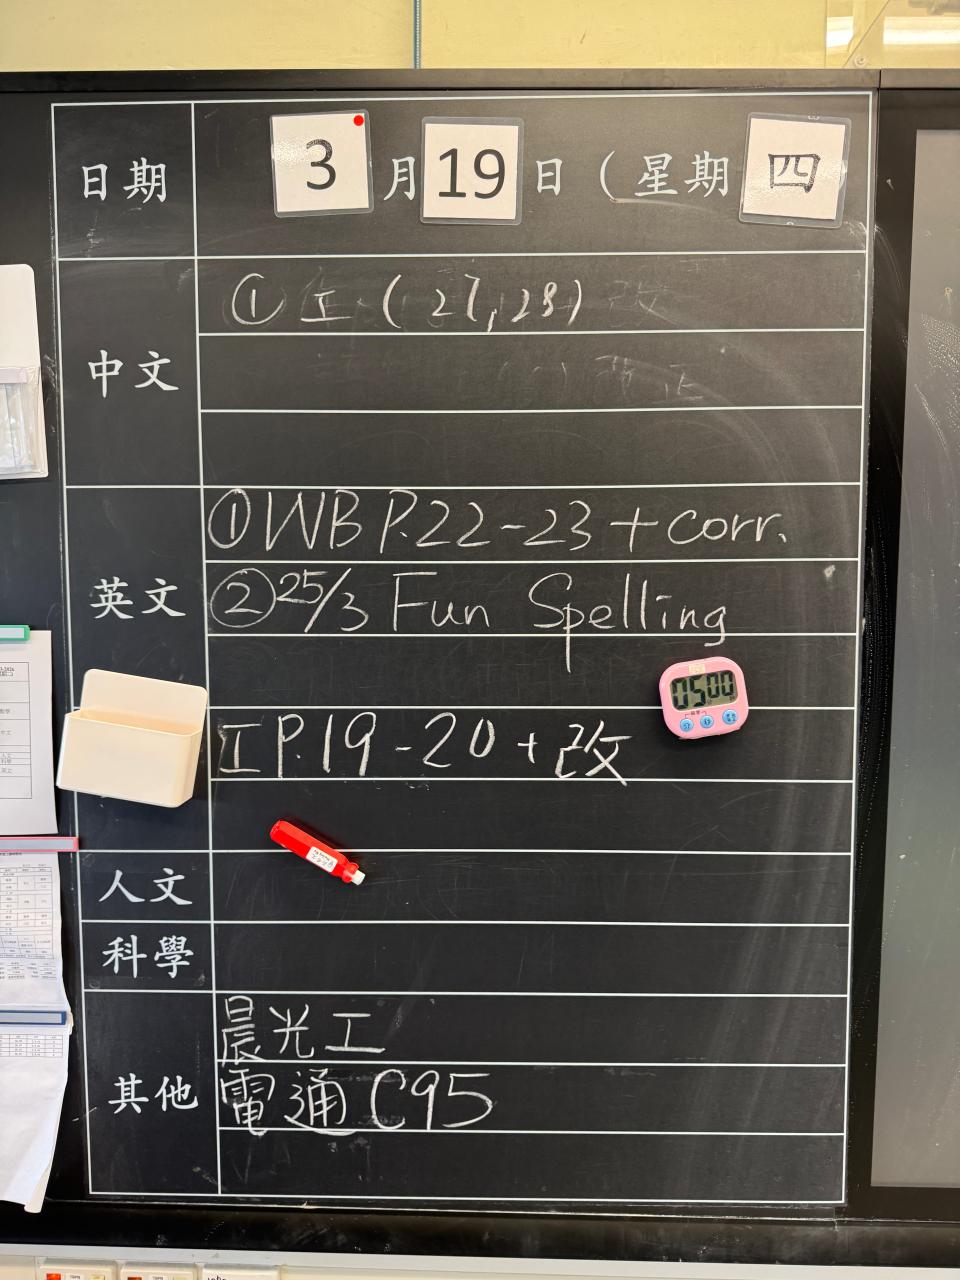 日期 3月19日(星期四
中文
①工(27,28)
英文
①WB P.22-23+corr.
②25/3 Fun Spelling
05 00
工P.19-20+改
人文
科學
其他
晨光工
電通C95